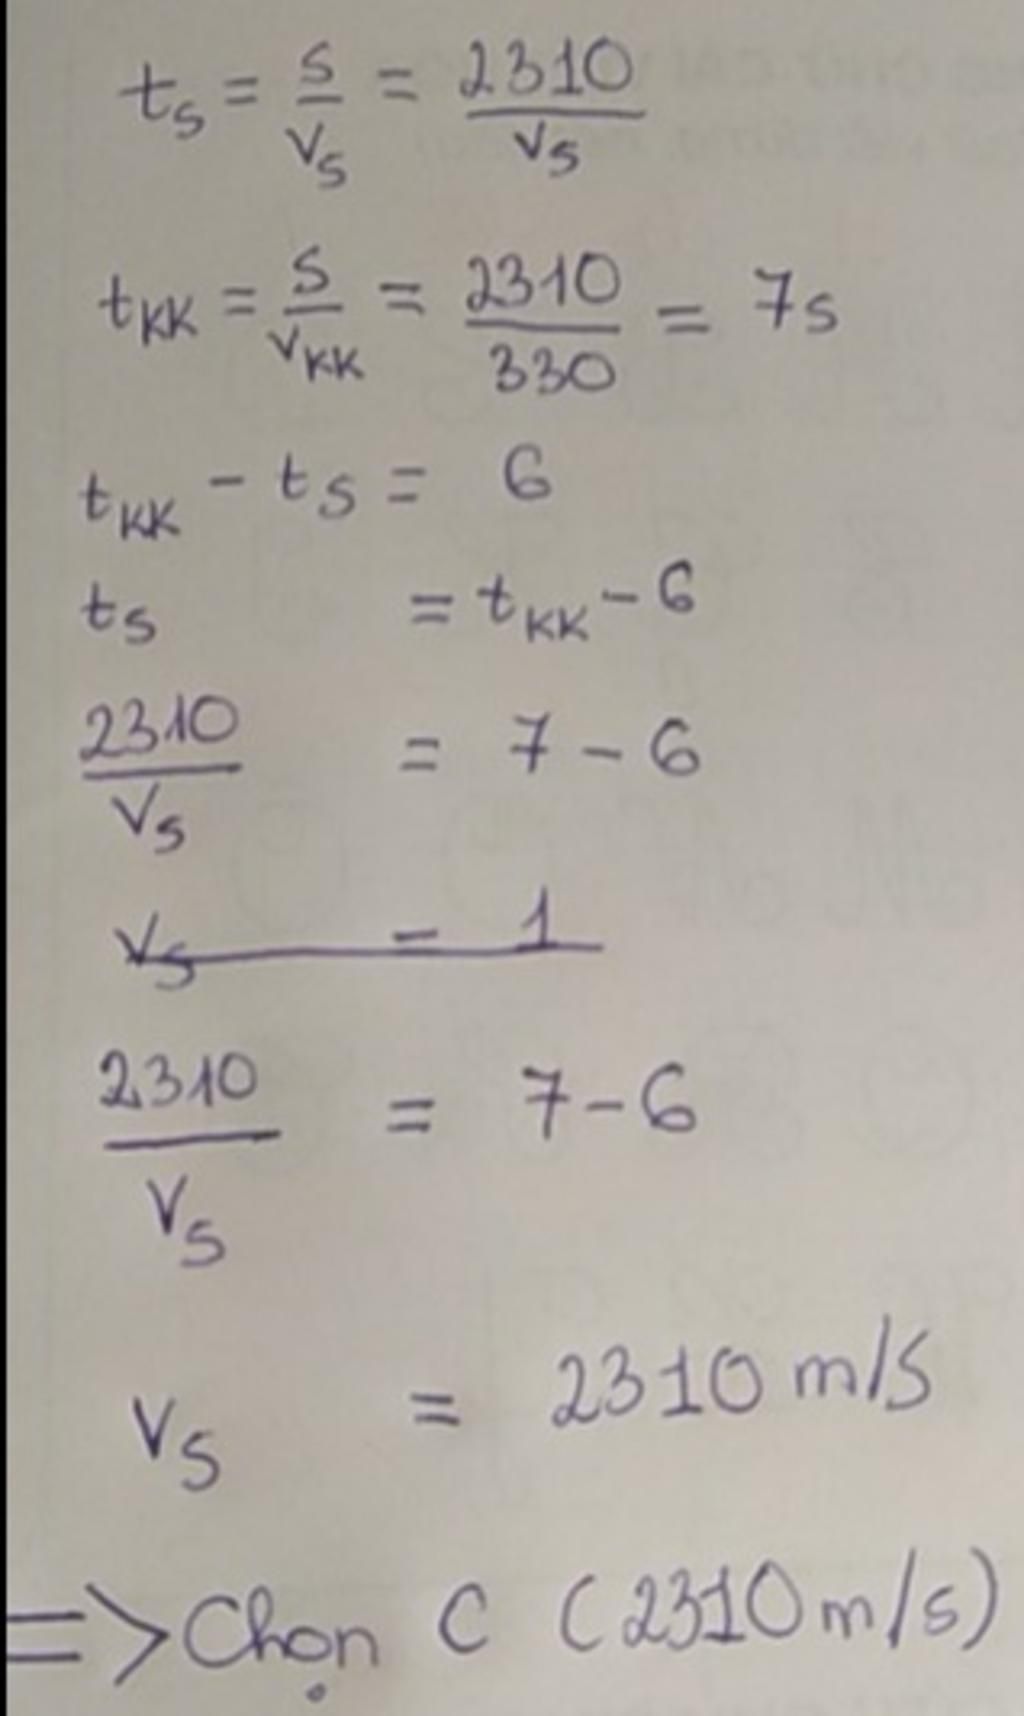 t_s = s/v_s = 2310/v_s
t_KK = s/v_KK = 2310/330 = 7s
t_KK - t_s = 6
t_s = t_KK - 6
2310/v_s = 7 - 6
v_s = 1
2310/v_s = 7 - 6
v_s = 2310 m/s
=> Chọn C (2310 m/s)